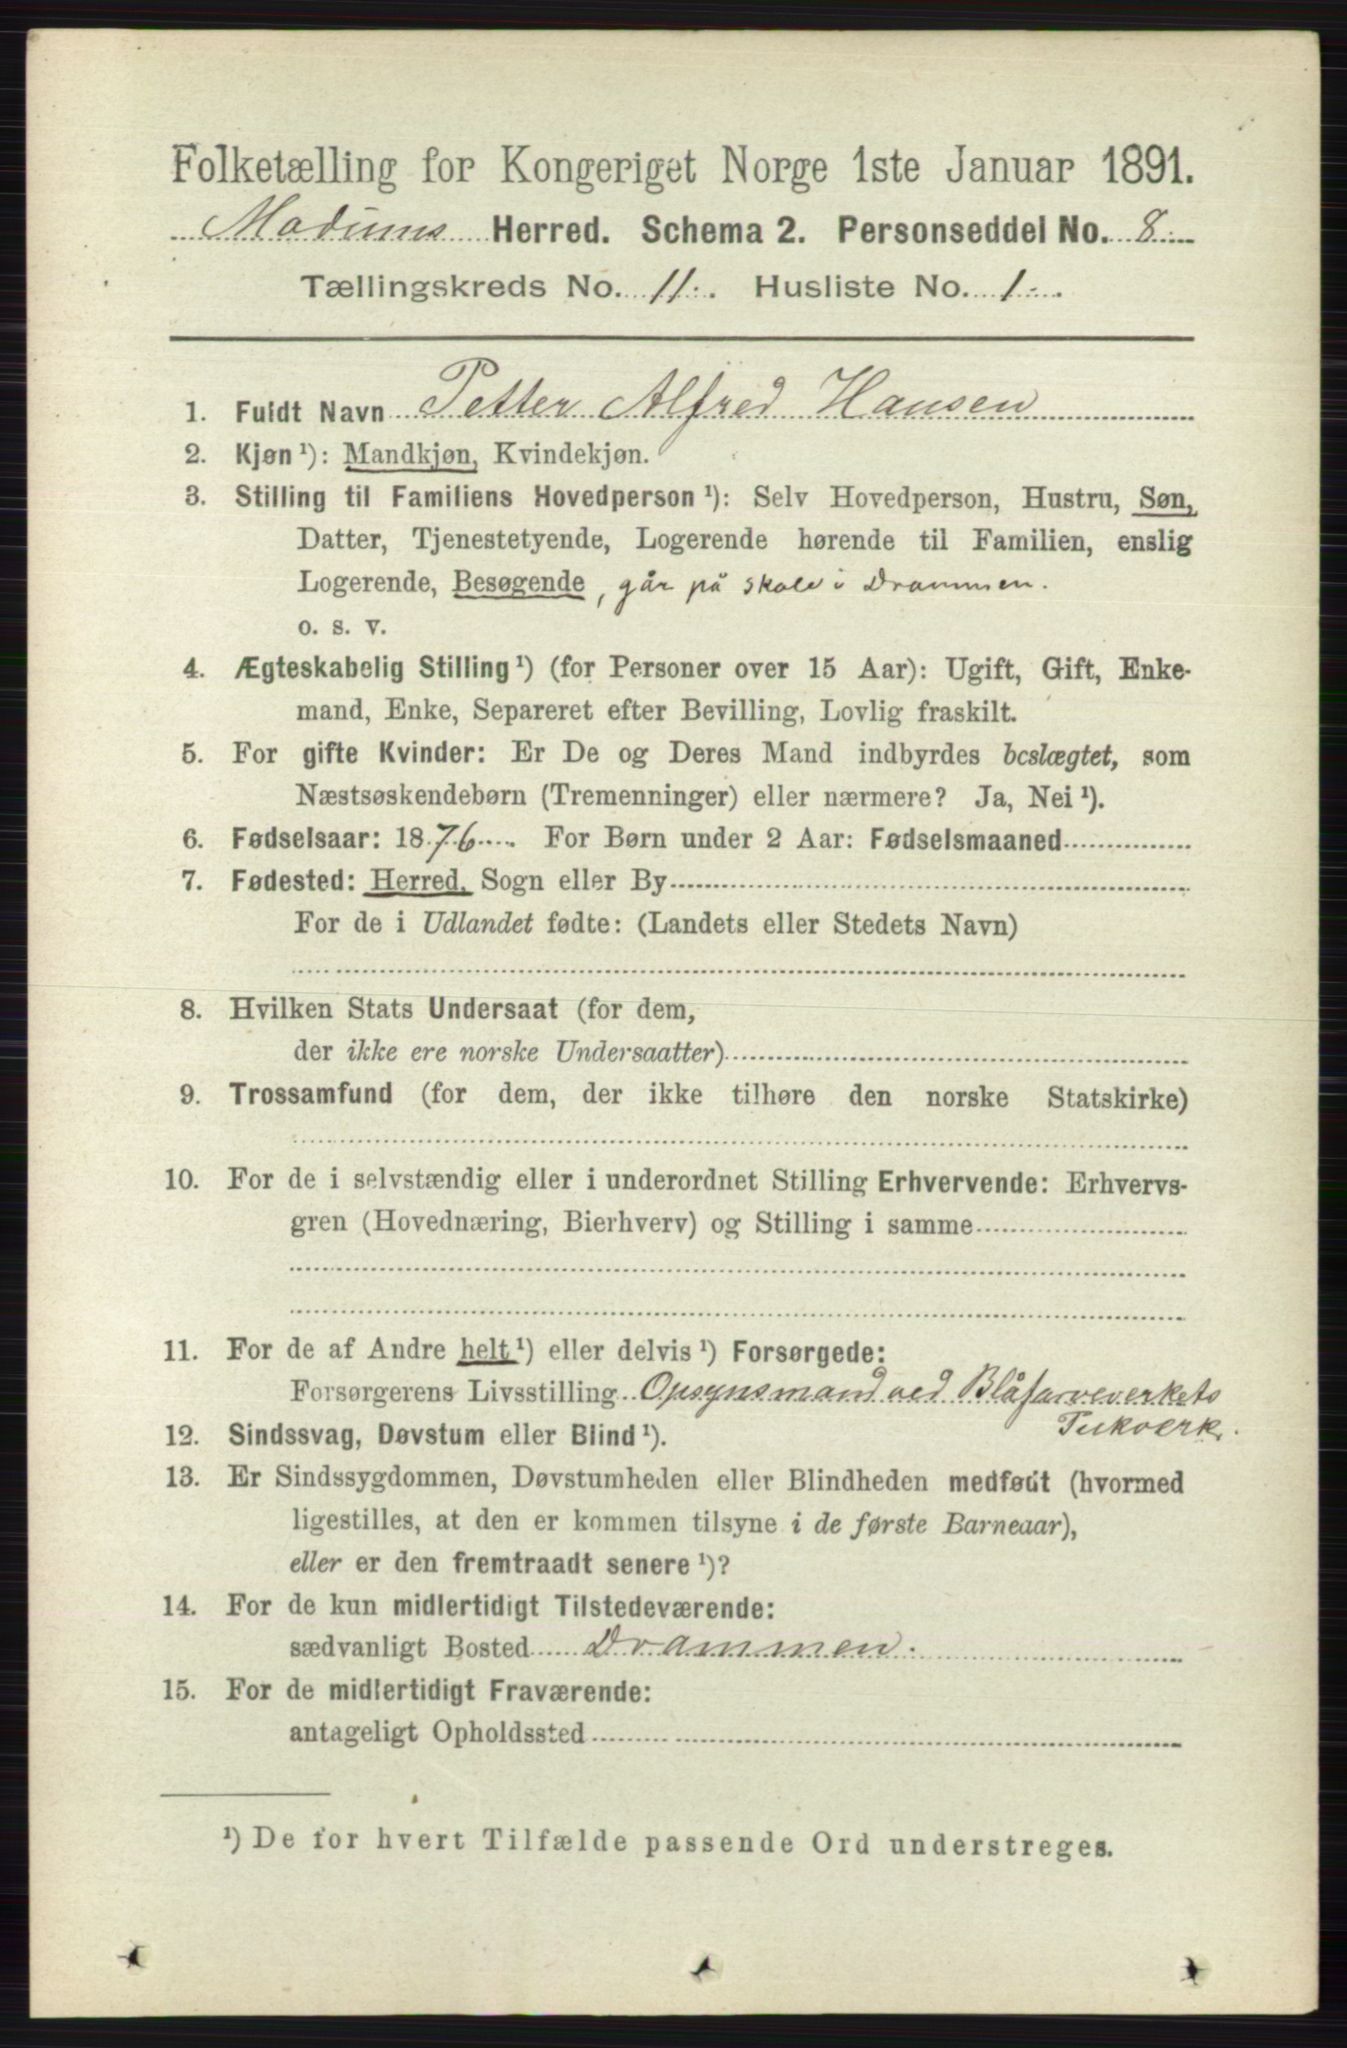 Folketælling for Kongeriget Norge 1ste Januar 1891.
Modums Herred. Schema 2. Personseddel No. 8
Tællingskreds No. 11. Husliste No. 1.
1. Fuldt Navn Petter Alfred Hansen
2. Kjøn ¹): Mandkjøn, Kvindekjøn.
3. Stilling til Familiens Hovedperson ¹): Selv Hovedperson, Hustru, Søn,
Datter, Tjenestetyende, Logerende hørende til Familien, enslig
Logerende, Besøgende, går på skole i Drammen.
o. s. v.
4. Ægteskabelig Stilling ¹) (for Personer over 15 Aar): Ugift, Gift, Enke-
mand, Enke, Separeret efter Bevilling, Lovlig fraskilt.
5. For gifte Kvinder: Er De og Deres Mand indbyrdes beslægtet, som
Næstsøskendebørn (Tremenninger) eller nærmere? Ja, Nei ¹).
6. Fødselsaar: 1876. For Børn under 2 Aar: Fødselsmaaned
7. Fødested: Herred, Sogn eller By
For de i Udlandet fødte: (Landets eller Stedets Navn)
8. Hvilken Stats Undersaat (for dem,
der ikke ere norske Undersaatter)
9. Trossamfund (for dem, der ikke tilhøre den norske Statskirke)
10. For de i selvstændig eller i underordnet Stilling Erhvervende: Erhvervs-
gren (Hovednæring, Bierhverv) og Stilling i samme
11. For de af Andre helt ¹) eller delvis ¹) Forsørgede:
Forsørgerens Livsstilling Opsynsmand ved Blåfarveverkets
12. Sindssvag, Døvstum eller Blind ¹).
13. Er Sindssygdommen, Døvstumheden eller Blindheden medfødt (hvormed
ligestilles, at den er kommen tilsyne i de første Barneaar),
eller er den fremtraadt senere ¹)?
14. For de kun midlertidigt Tilstedeværende:
sædvanligt Bosted Drammen.
15. For de midlertidigt Fraværende:
antageligt Opholdssted
¹) De for hvert Tilfælde passende Ord understreges.